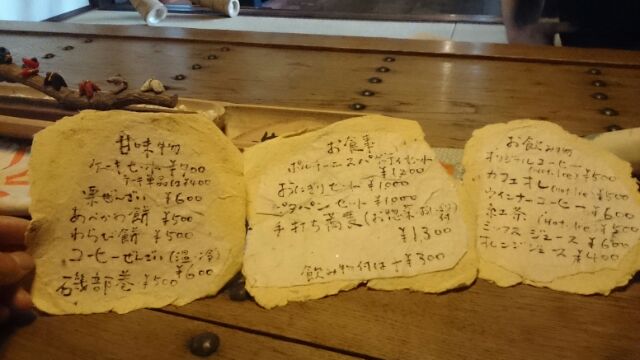 甘味物
ケーキセット ¥700
ケーキ単品は¥400
栗ぜんざい ¥600
あべかわ餅 ¥500
わらび餅 ¥500
コーヒーぜんざい(温・冷)
¥600
磯部巻 ¥500
お食事
¥1,200
おにぎりセット ¥1000
ピタパンセット ¥1000
手打ち蕎麦(お惣菜
¥1,300
飲み物付は+¥300
お飲み物
オリジナルコーヒー
(Hot.Ice) ¥500
カフェオレ(Hot.Ice) ¥500
ウインナーコーヒー ¥600
紅茶 (Hot.Ice) ¥500
ミックスジュース ¥600
オレンジジュース ¥400